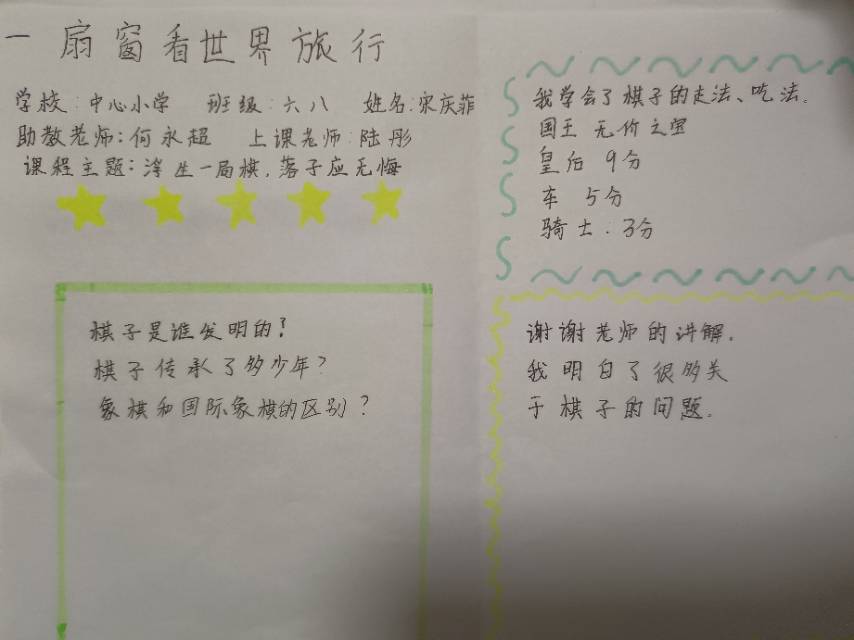 一扇窗看世界旅行
学校:中心小学 班级:六八 姓名:宋庆菲
助教老师:何永超 上课老师:陆彤
课程主题:浮生一局棋,落子应无悔
棋子是谁发明的?
棋子传承了多少年?
象棋和国际象棋的区别?
我学会了棋子的走法、吃法。
国王 无价之宝
皇后 9分
车 5分
骑士:3分
谢谢老师的讲解。
我明白了很多关
于棋子的问题。